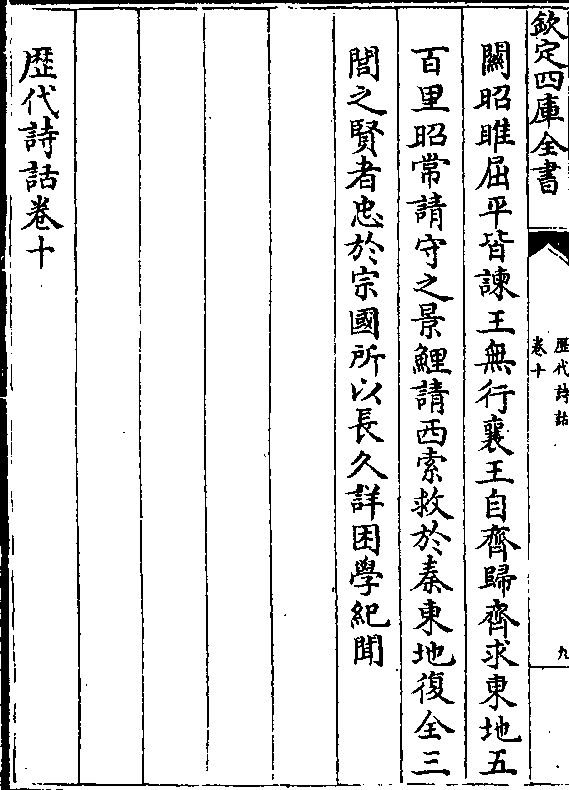 欽定四庫全書
歴代詩話
卷十
九
關昭睢屈平皆諫王無行襄王自齊歸齊求東地五
百里昭常請守之景鯉請西索救於秦東地復全三
閭之賢者忠於宗國所以長久詳困學紀聞
歴代詩話卷十